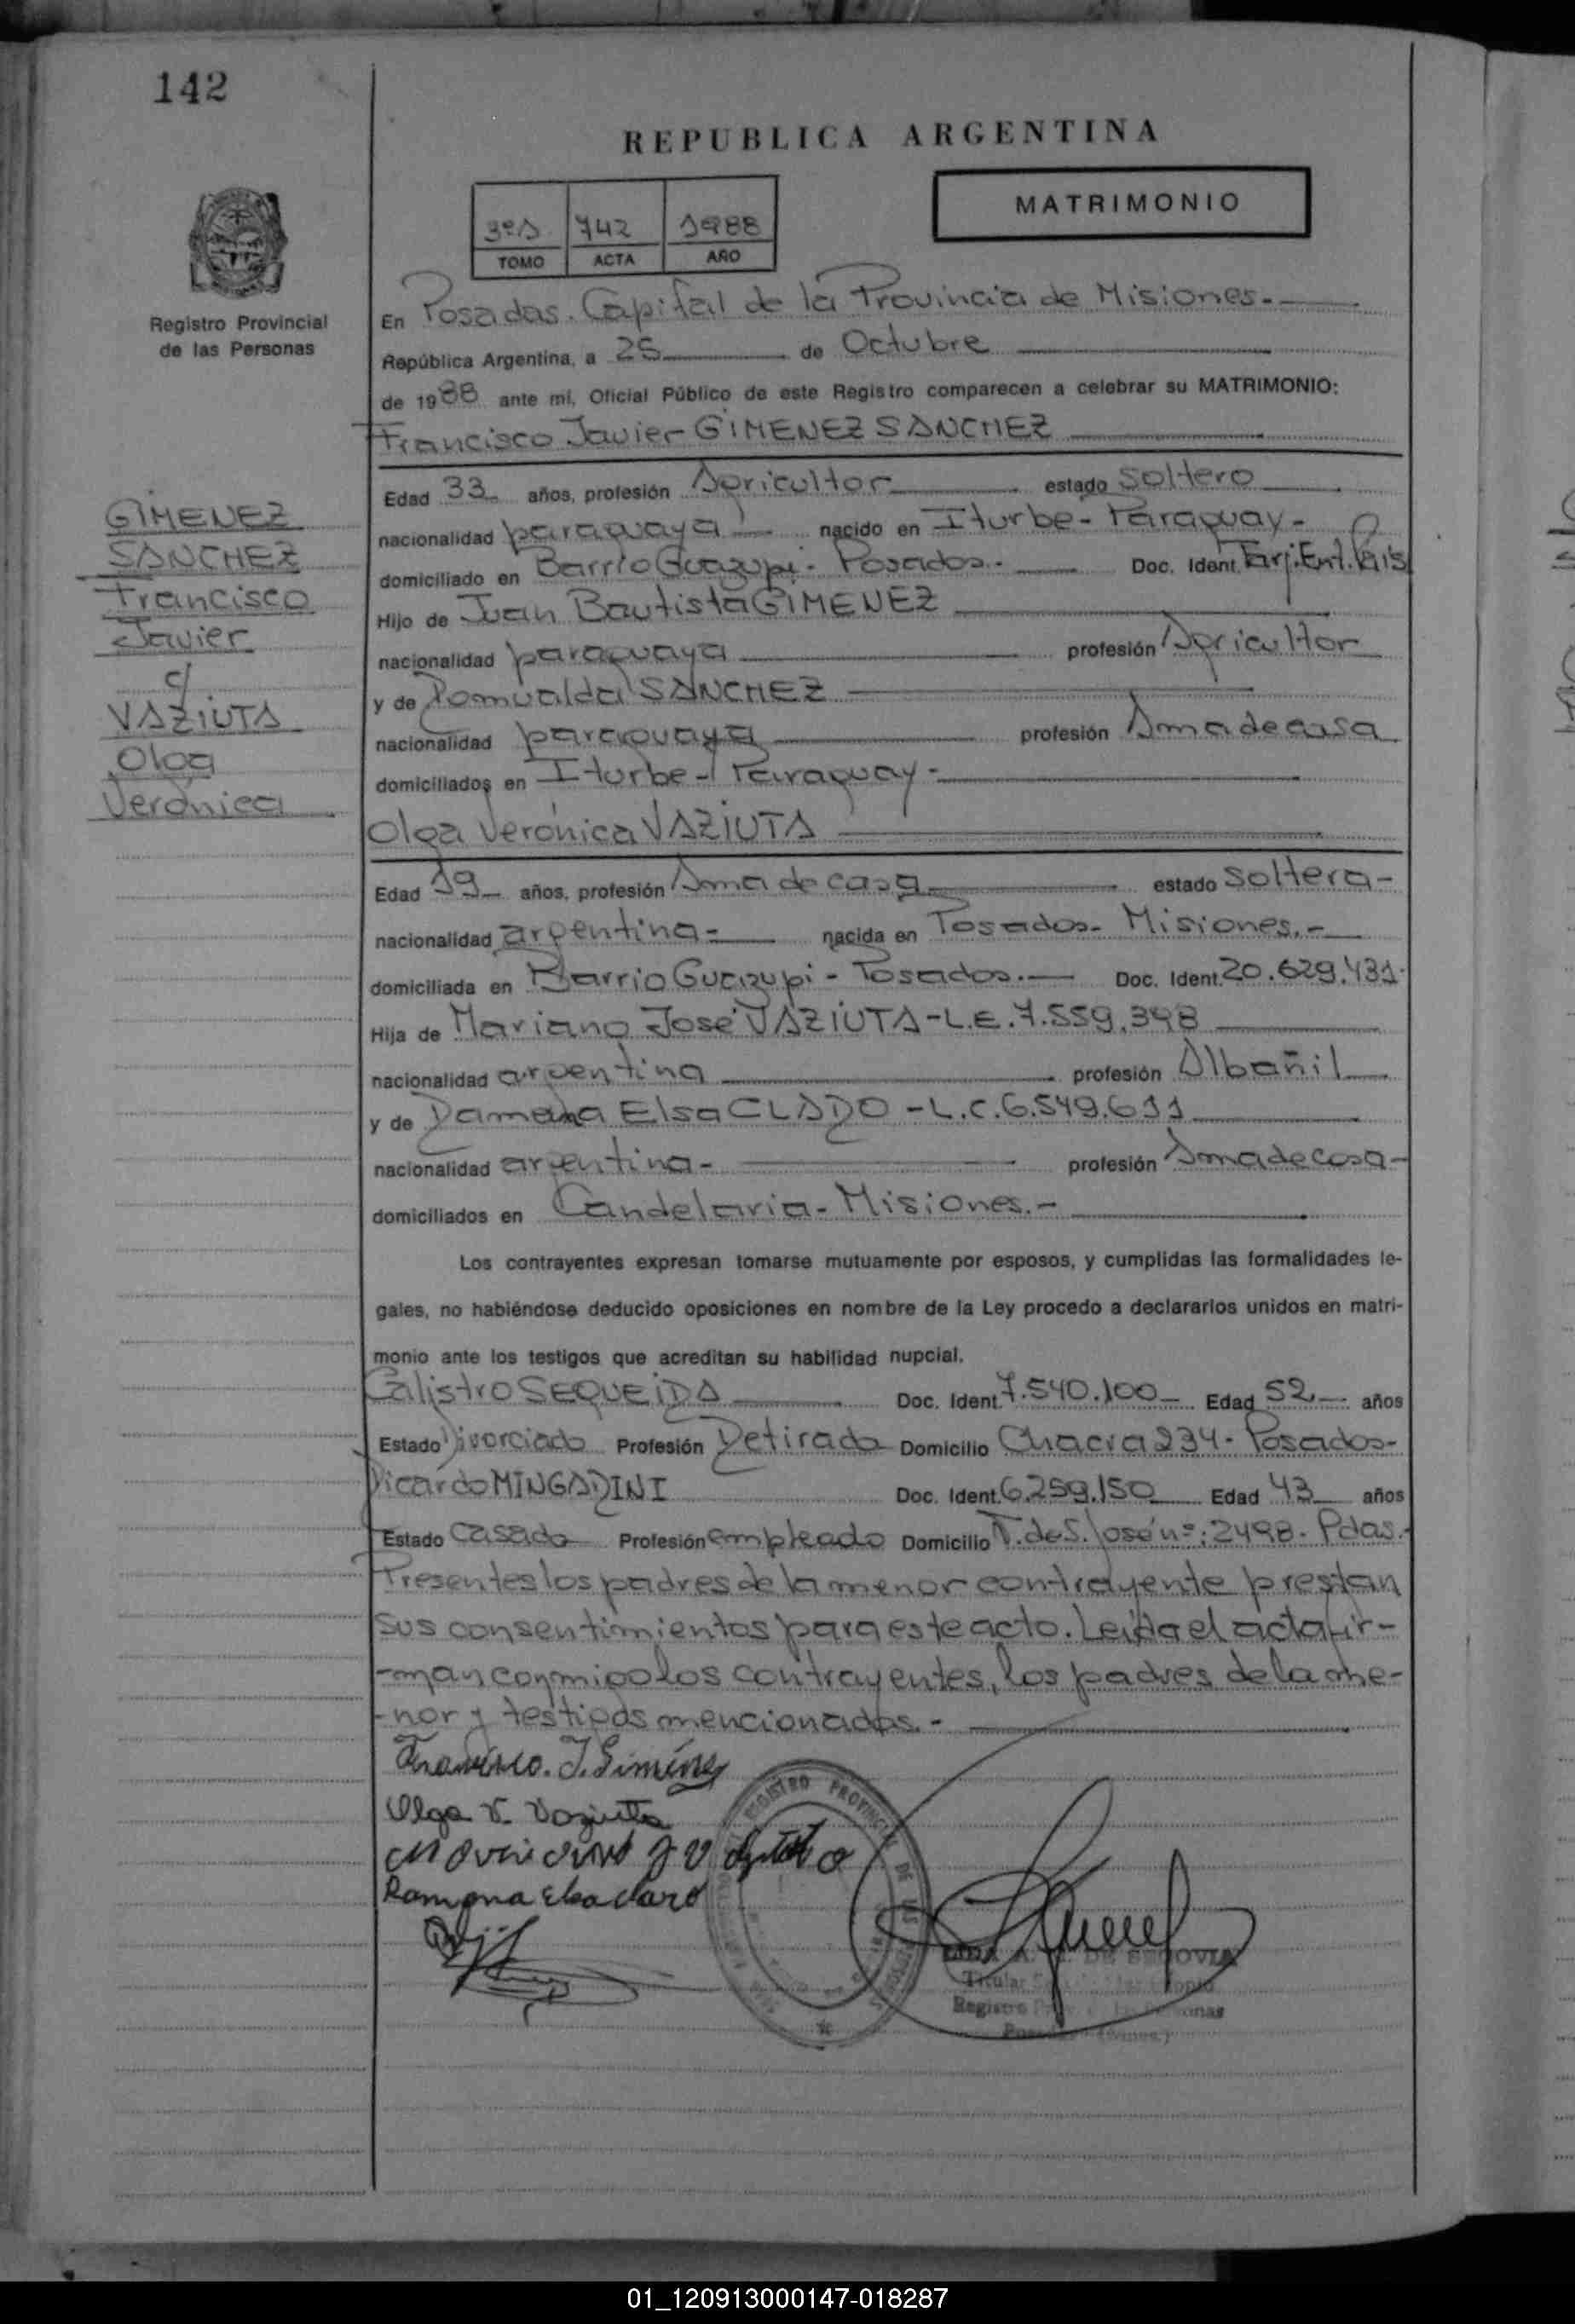 142
REPUBLICA ARGENTINA
MATRIMONIO
3º1 742 1988
TOMO ACTA AÑO
Registro Provincial
de las Personas
En Posadas. Capital de la Provincia de Misiones.-
República Argentina, a 25 de Octubre
de 1988 ante mí, Oficial Público de este Registro comparecen a celebrar su MATRIMONIO:
Francisco Javier GIMENEZ SANCHEZ
GIMENEZ
SANCHEZ
Francisco
Javier
c/
VAZIUTA
Olga
Verónica
Edad 33 años, profesión Agricultor estado soltero
nacionalidad paraguaya nacido en Iturbe- Paraguay-
domiciliado en Barrio Guazupi- Posadas.- Doc. Ident. Tarj.Ent.País
Hijo de Juan Bautista GIMENEZ
nacionalidad paraguaya profesión Agricultor
y de Romualda SANCHEZ
nacionalidad paraguaya profesión Ama de casa
domiciliados en Iturbe- Paraguay-
Olga Verónica VAZIUTA
Edad 19 años, profesión Ama de casa estado soltera-
nacionalidad argentina- nacida en Posadas- Misiones.-
domiciliada en Barrio Guazupi- Posadas.- Doc. Ident. 20.629.431.
Hija de Mariano José VAZIUTA-L.E.7.559.348
nacionalidad argentina profesión Albañil
y de Ramona Elsa CLARO-L.C.6.549.611
nacionalidad argentina- profesión Ama de casa-
domiciliados en Candelaria- Misiones.-
Los contrayentes expresan tomarse mutuamente por esposos, y cumplidas las formalidades le-
gales, no habiéndose deducido oposiciones en nombre de la Ley procedo a declararlos unidos en matri-
monio ante los testigos que acreditan su habilidad nupcial.
Calistro SEQUEIRA Doc. Ident. 7.540.100 Edad 52 años
Estado Divorciado Profesión Retirado Domicilio Chacra 234- Posadas-
Ricardo MINGARINI Doc. Ident. 6.259.150 Edad 43 años
Estado Casado Profesión empleado Domicilio T.de S. José nº:2498. Pdas.-
Presentes los padres de la menor contrayente prestan
sus consentimientos para este acto. Leída el acta fir-
-man conmigo los contrayentes, los padres de la me-
-nor y testigos mencionados.-
Francisco. J. Giménez
Olga V. Vaziuta
Ramona Elsa Claro
REGISTRO PROVINCIAL DE LAS PERSONAS
DE SEGOVIA
Titular
Registro
01_120913000147-018287